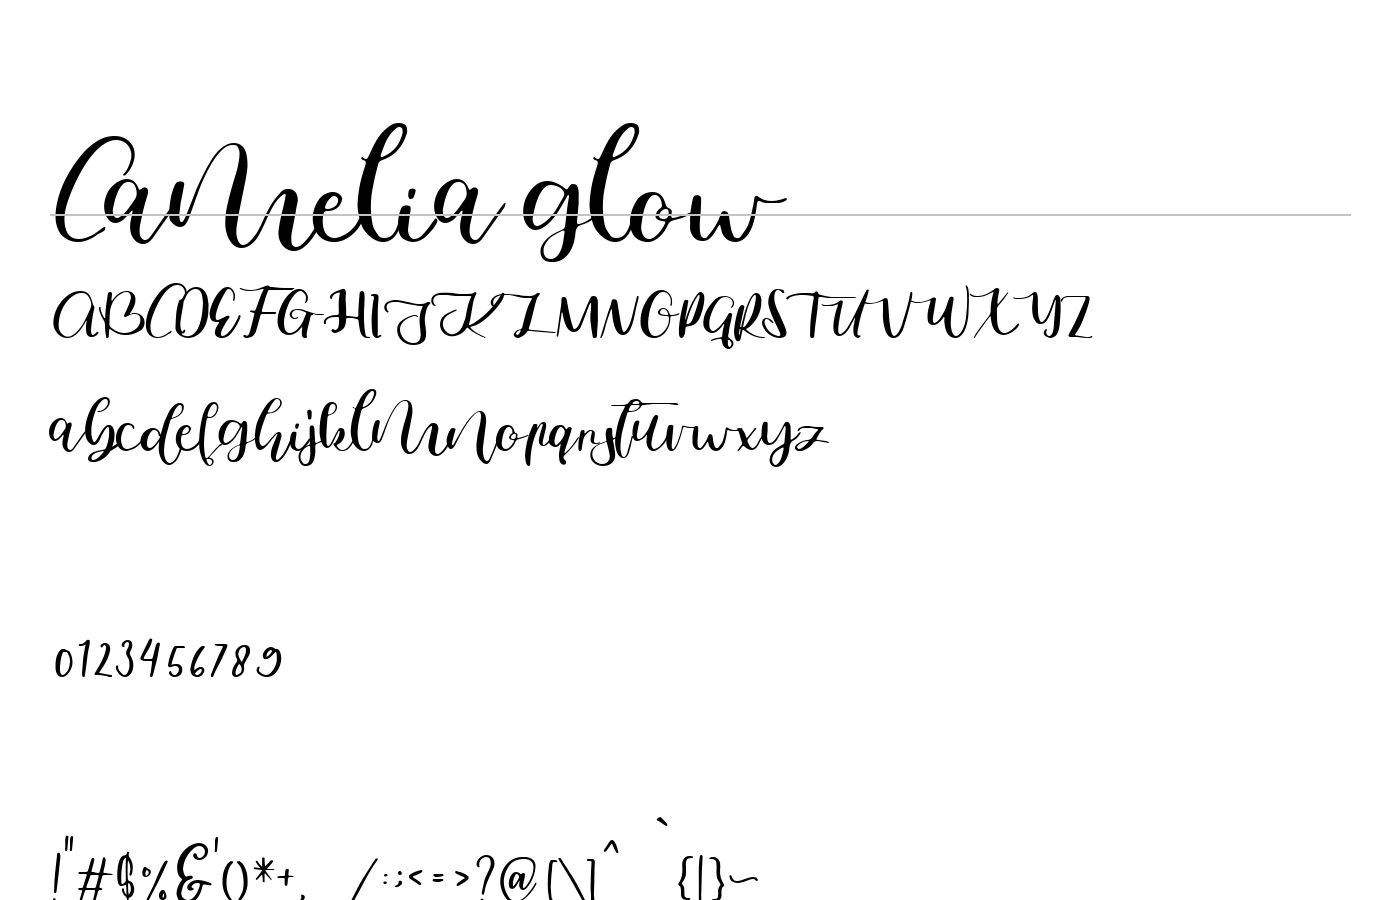 Camelia glow
ABCDEFGHIJKLMNOPQRSTUVWXYZ
abcdefghijklmnopqrstuvwxyz
0123456789
!"#$%&'()*+, /:;<=>?@[\]^ `{|}~